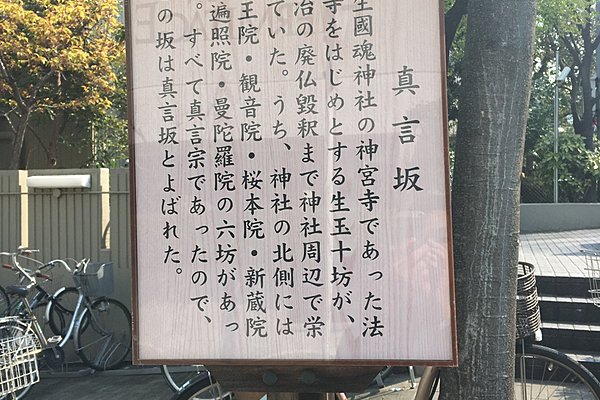 真言坂
生國魂神社の神宮寺であった法
寺をはじめとする生玉十坊が、
治の廃仏毀釈まで神社周辺で栄
ていた。うち、神社の北側には
王院・観音院・桜本院・新蔵院
遍照院・曼陀羅院の六坊があっ
。すべて真言宗であったので、
の坂は真言坂とよばれた。